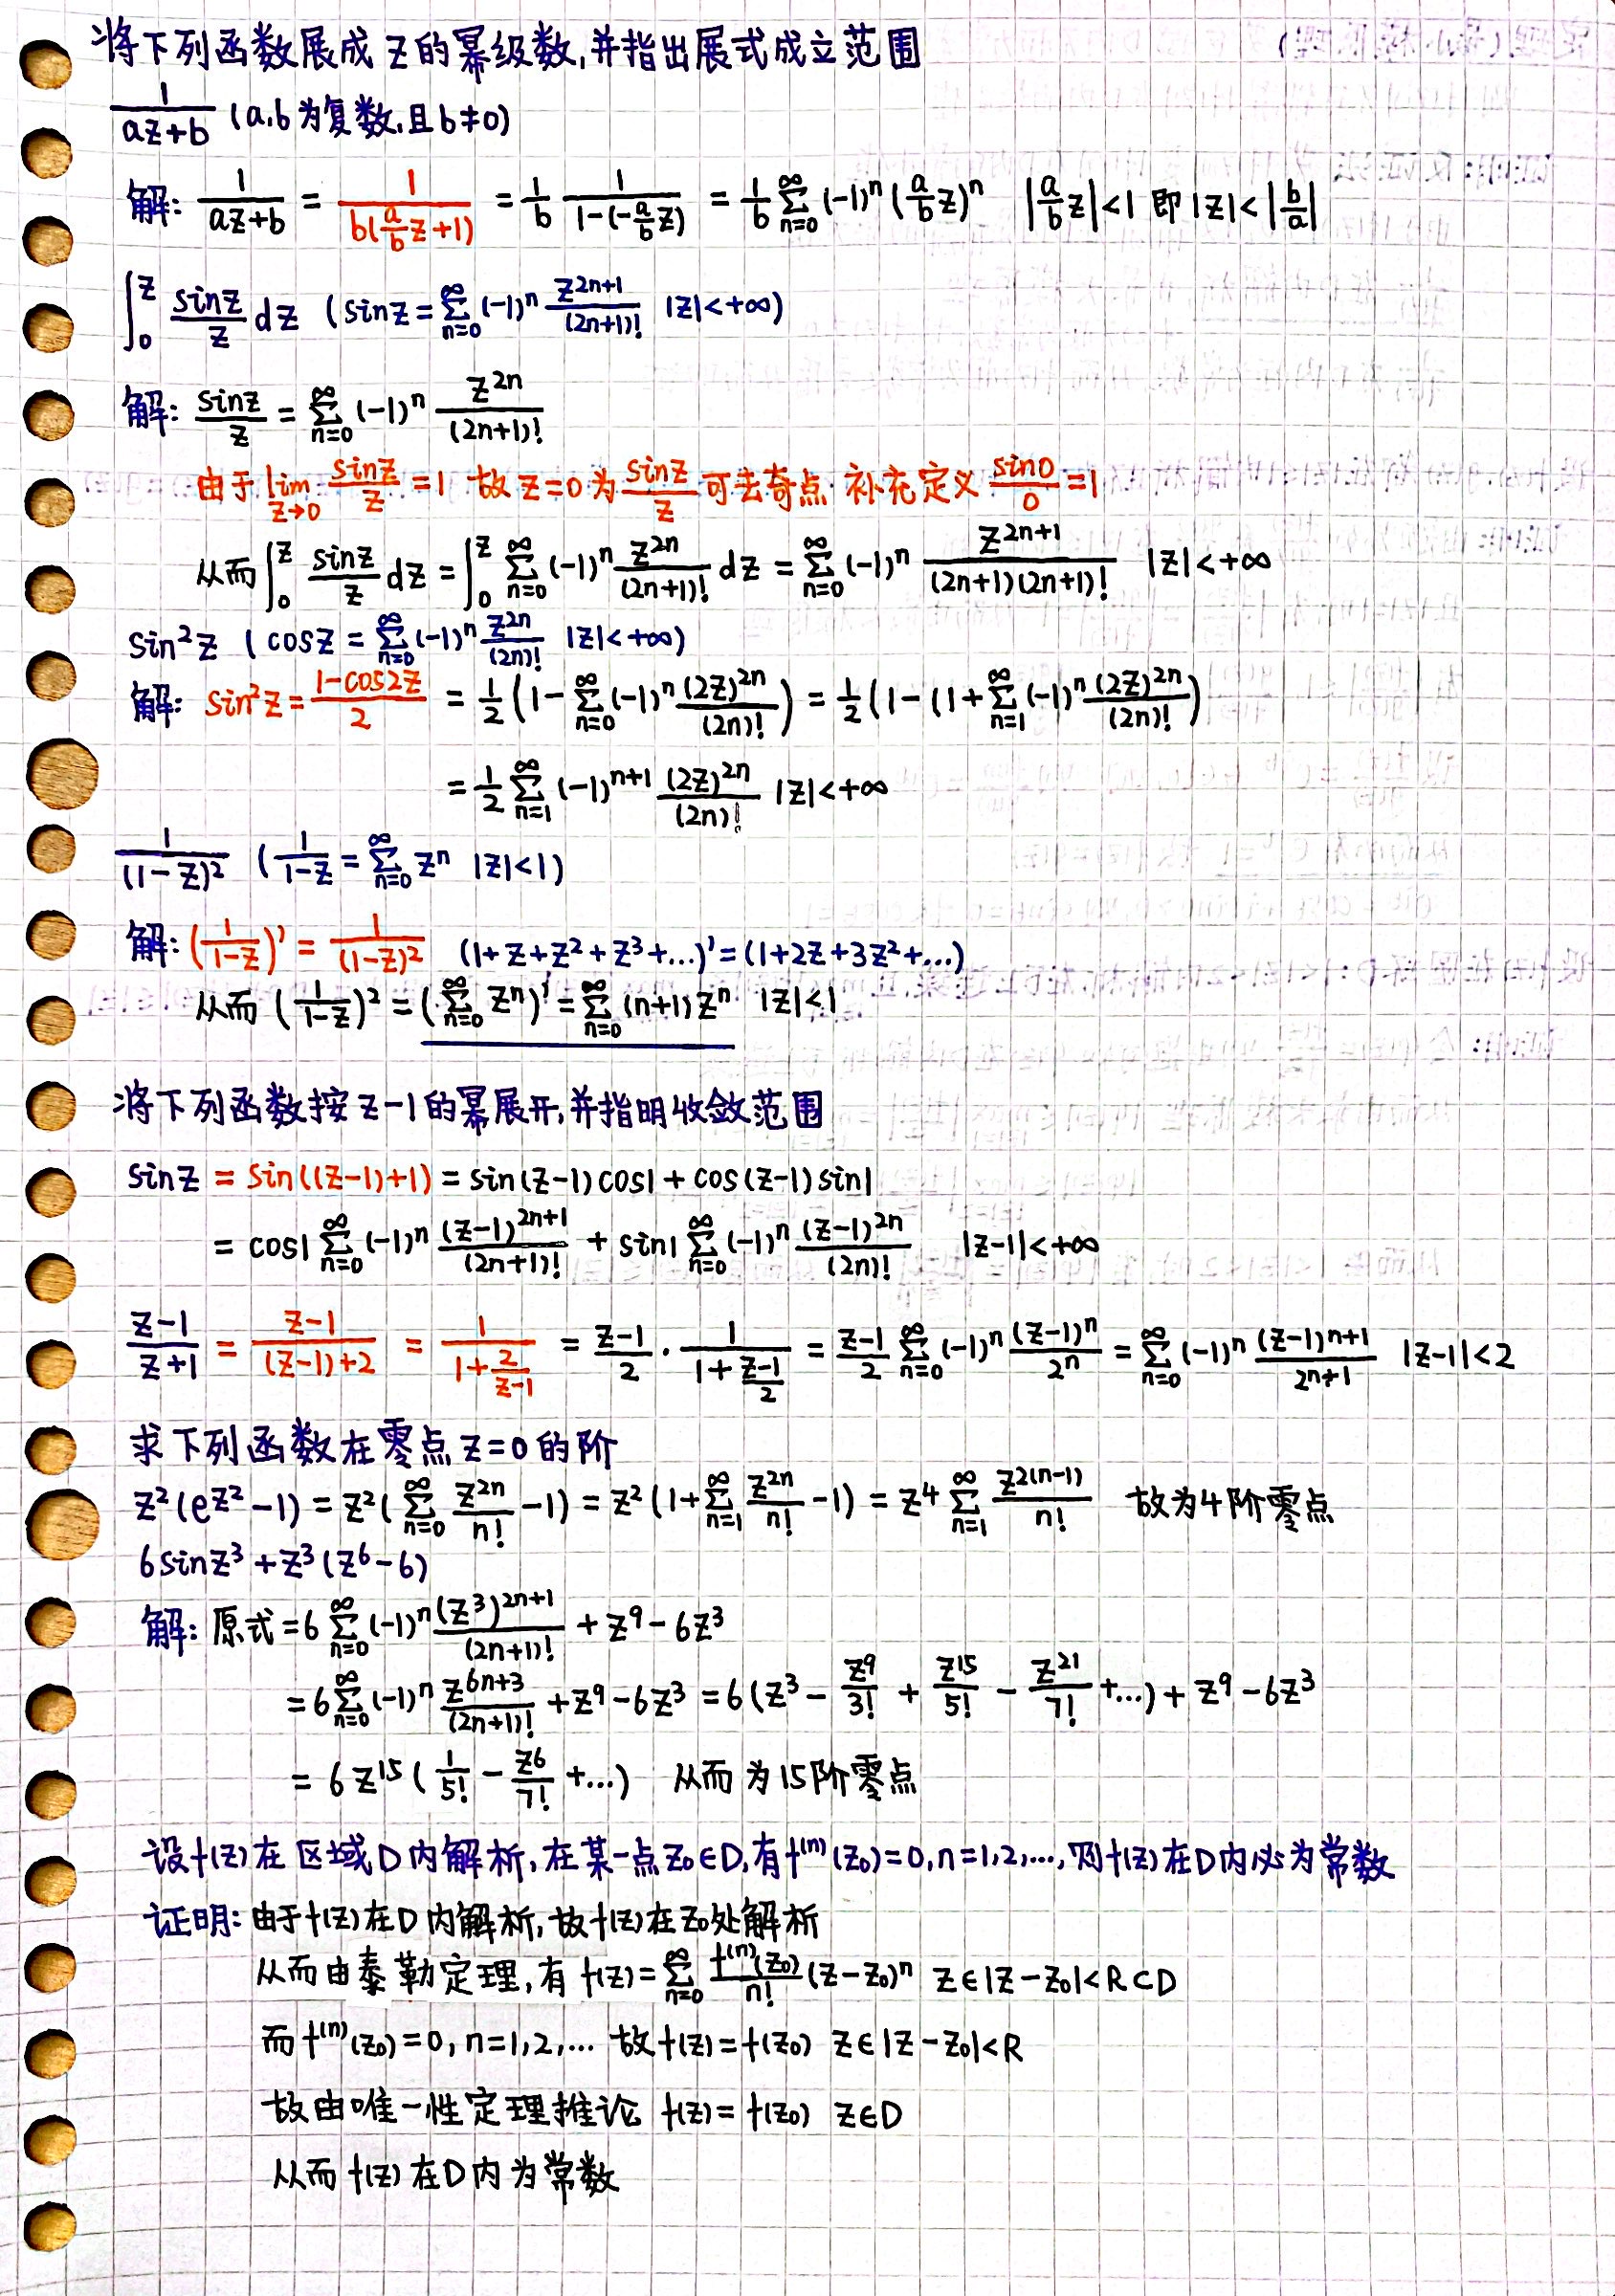 将下列函数展成z的幂级数,并指出展式成立范围
1/(az+b) (a,b为复数,且b≠0)
解: 1/(az+b) = 1/(b(a/b z+1)) = 1/b · 1/(1-(-a/b z)) = 1/b ∑_{n=0}^{∞} (-1)^n (a/b z)^n |a/b z|<1 即 |z|<|b/a|
∫_0^z sinz/z dz (sinz = ∑_{n=0}^{∞} (-1)^n z^{2n+1}/(2n+1)! |z|<+∞)
解: sinz/z = ∑_{n=0}^{∞} (-1)^n z^{2n}/(2n+1)!
由于 lim_{z→0} sinz/z = 1 故z=0为 sinz/z 可去奇点 补充定义 sin0/0 = 1
从而 ∫_0^z sinz/z dz = ∫_0^z ∑_{n=0}^{∞} (-1)^n z^{2n}/(2n+1)! dz = ∑_{n=0}^{∞} (-1)^n z^{2n+1}/((2n+1)(2n+1)!) |z|<+∞
sin²z (cosz = ∑_{n=0}^{∞} (-1)^n z^{2n}/(2n)! |z|<+∞)
解: sin²z = (1-cos2z)/2 = 1/2 (1-∑_{n=0}^{∞} (-1)^n (2z)^{2n}/(2n)!) = 1/2 (1-(1+∑_{n=1}^{∞} (-1)^n (2z)^{2n}/(2n)!)
= 1/2 ∑_{n=1}^{∞} (-1)^{n+1} (2z)^{2n}/(2n)! |z|<+∞
1/(1-z)² (1/(1-z) = ∑_{n=0}^{∞} z^n |z|<1)
解: (1/(1-z))' = 1/(1-z)² (1+z+z²+z³+...)' = (1+2z+3z²+...)
从而 (1/(1-z))² = (∑_{n=0}^{∞} z^n)' = ∑_{n=0}^{∞} (n+1)z^n |z|<1
将下列函数按z-1的幂展开,并指明收敛范围
sinz = sin((z-1)+1) = sin(z-1)cos1 + cos(z-1)sin1
= cos1 ∑_{n=0}^{∞} (-1)^n (z-1)^{2n+1}/(2n+1)! + sin1 ∑_{n=0}^{∞} (-1)^n (z-1)^{2n}/(2n)! |z-1|<+∞
(z-1)/(z+1) = (z-1)/((z-1)+2) = 1/(1+2/(z-1)) = (z-1)/2 · 1/(1+(z-1)/2) = (z-1)/2 ∑_{n=0}^{∞} (-1)^n (z-1)^n/2^n = ∑_{n=0}^{∞} (-1)^n (z-1)^{n+1}/2^{n+1} |z-1|<2
求下列函数在零点z=0的阶
z²(e^{z²}-1) = z²(∑_{n=0}^{∞} z^{2n}/n! -1) = z²(1+∑_{n=1}^{∞} z^{2n}/n! -1) = z⁴ ∑_{n=1}^{∞} z^{2(n-1)}/n! 故为4阶零点
6sinz³+z³(z⁶-6)
解: 原式 = 6 ∑_{n=0}^{∞} (-1)^n (z³)^{2n+1}/(2n+1)! + z⁹-6z³
= 6 ∑_{n=0}^{∞} (-1)^n z^{6n+3}/(2n+1)! + z⁹-6z³ = 6(z³ - z⁹/3! + z^{15}/5! - z^{21}/7! +...) + z⁹-6z³
= 6z^{15} (1/5! - z⁶/7! +...) 从而为15阶零点
设f(z)在区域D内解析,在某一点z₀∈D,有f^{(n)}(z₀)=0,n=1,2,...,则f(z)在D内必为常数
证明: 由于f(z)在D内解析,故f(z)在z₀处解析
从而由泰勒定理,有 f(z) = ∑_{n=0}^{∞} f^{(n)}(z₀)/n! (z-z₀)^n z∈|z-z₀|<R⊂D
而f^{(n)}(z₀)=0,n=1,2,... 故f(z)=f(z₀) z∈|z-z₀|<R
故由唯一性定理推论 f(z)=f(z₀) z∈D
从而f(z)在D内为常数